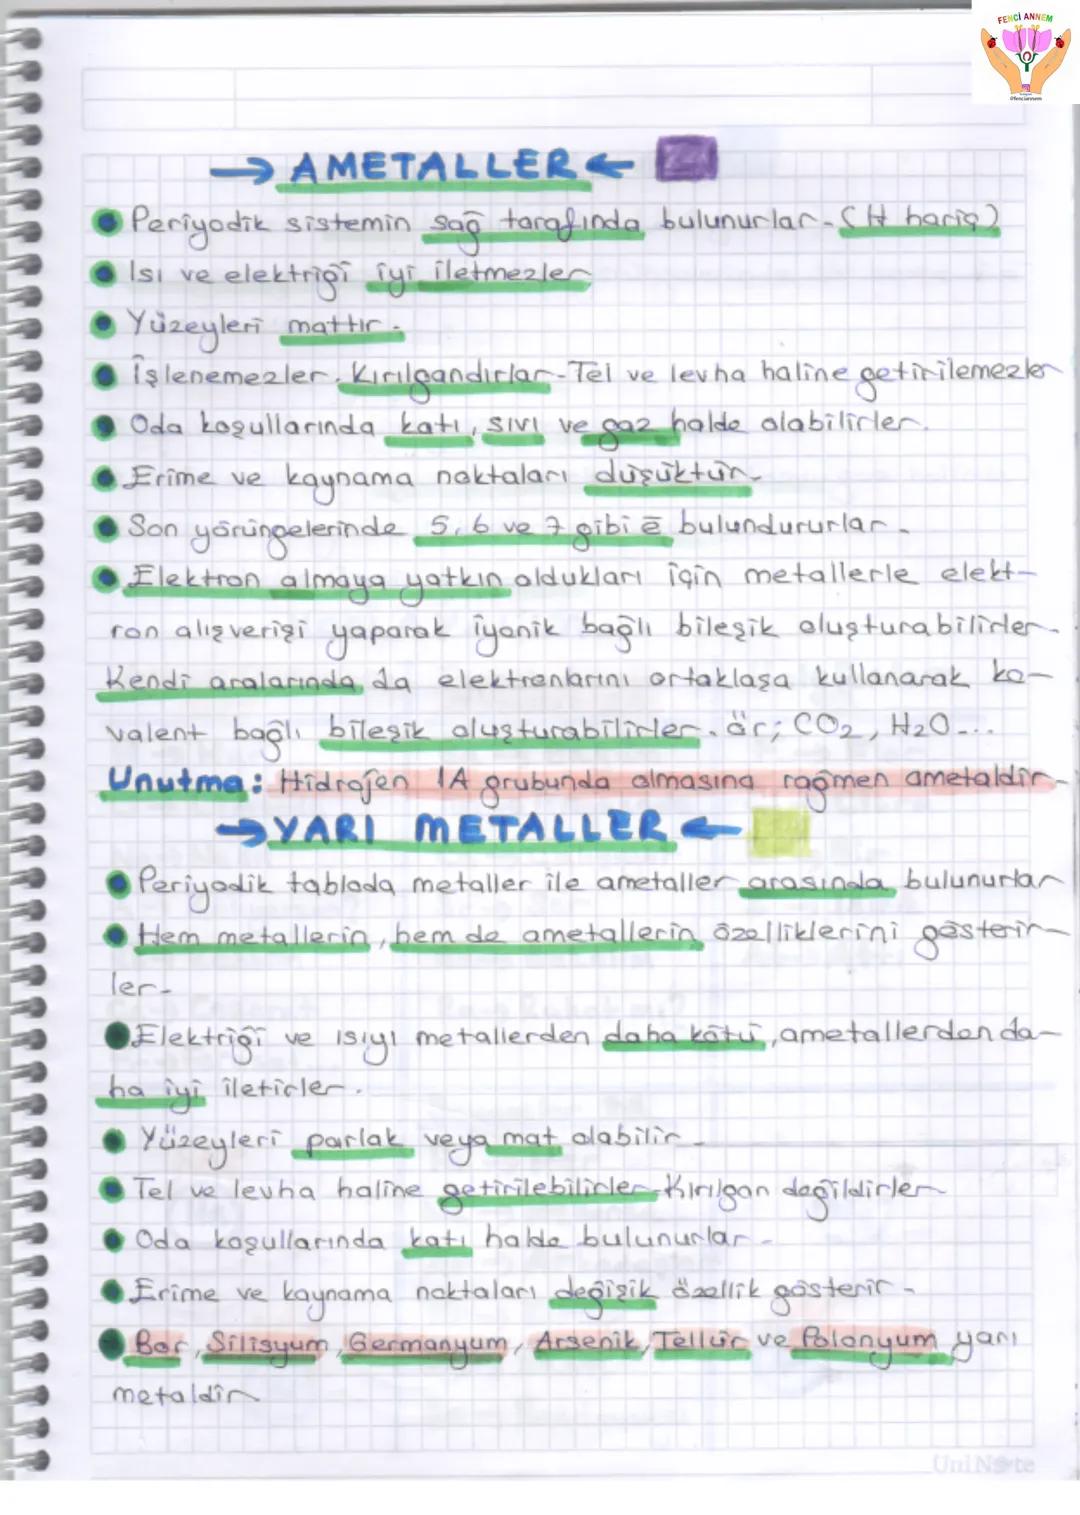 FENCİ ANNEM
@fenciannem
→ AMETALLER ←
Periyodik sistemin sağ tarafında bulunurlar. (H hariç)
Isı ve elektriği iyi iletmezler
Yüzeyleri mattır.
İşlenemezler. Kırılgandırlar. Tel ve levha haline getirilemezler
Oda koşullarında katı, sıvı ve gaz halde olabilirler.
Erime ve kaynama noktaları düşüktür.
Son yörüngelerinde 5, 6 ve 7 gibi ē bulundururlar.
Elektron almaya yatkın oldukları için metallerle elekt-
ron alışverişi yaparak iyonik bağlı bileşik oluşturabilirler.
Kendi aralarında da elektronlarını ortaklaşa kullanarak ko-
valent bağlı bileşik oluşturabilirler. ör; CO₂, H₂O...
Unutma: Hidrojen 1A grubunda olmasına rağmen ametaldir.
→ YARI METALLER ←
Periyodik tabloda metaller ile ametaller arasında bulunurlar
Hem metallerin, hem de ametallerin özelliklerini gösterir-
ler.
Elektriği ve ısıyı metallerden daha kötü, ametallerden da-
ha iyi iletirler.
Yüzeyleri parlak veya mat olabilir.
Tel ve levha haline getirilebilirler. Kırılgan değildirler
Oda koşullarında katı halde bulunurlar.
Erime ve kaynama noktaları değişik özellik gösterir.
Bor, Silisyum, Germanyum, Arsenik, Tellür ve Polonyum yarı
metaldir
UniNote